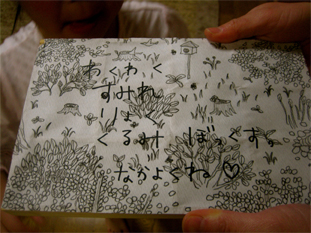 わくわく
すみれ
りょ
くるみ ぼっくす。
なかよくね♡